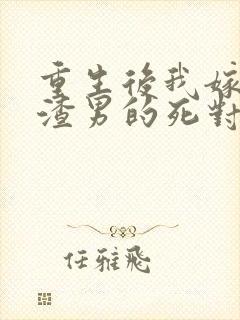 重生後我嫁
渣男的死對
任雅飛